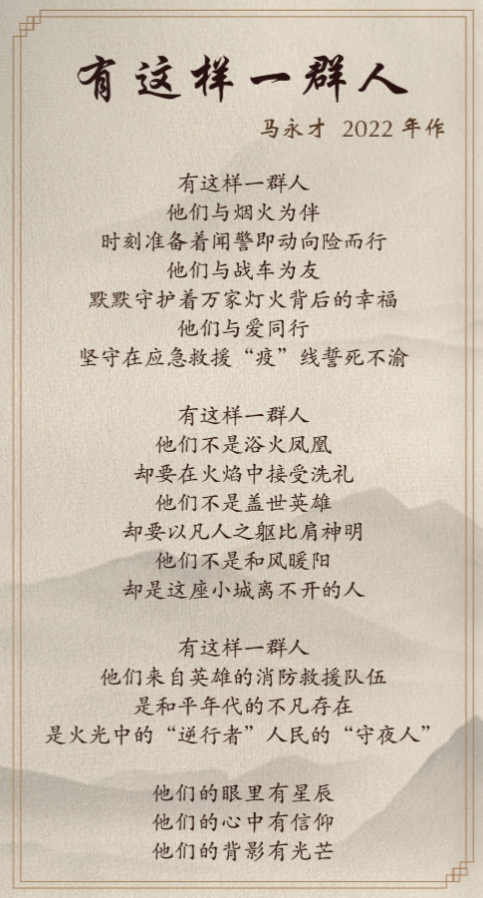 有这样一群人
马永才 2022 年作
有这样一群人
他们与烟火为伴
时刻准备着闻警即动向险而行
他们与战车为友
默默守护着万家灯火背后的幸福
他们与爱同行
坚守在应急救援“疫”线誓死不渝
有这样一群人
他们不是浴火凤凰
却要在火焰中接受洗礼
他们不是盖世英雄
却要以凡人之躯比肩神明
他们不是和风暖阳
却是这座小城离不开的人
有这样一群人
他们来自英雄的消防救援队伍
是和平年代的不凡存在
是火光中的“逆行者”人民的“守夜人”
他们的眼里有星辰
他们的心中有信仰
他们的背影有光芒